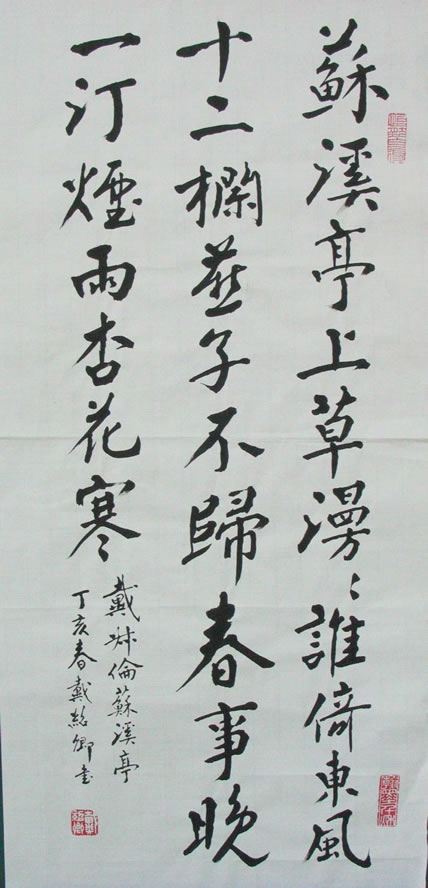 蘇溪亭上草漫〻誰倚東風
十二欄燕子不歸春事晚
一汀煙雨杏花寒
戴叔倫蘇溪亭
丁亥春戴紹卿書